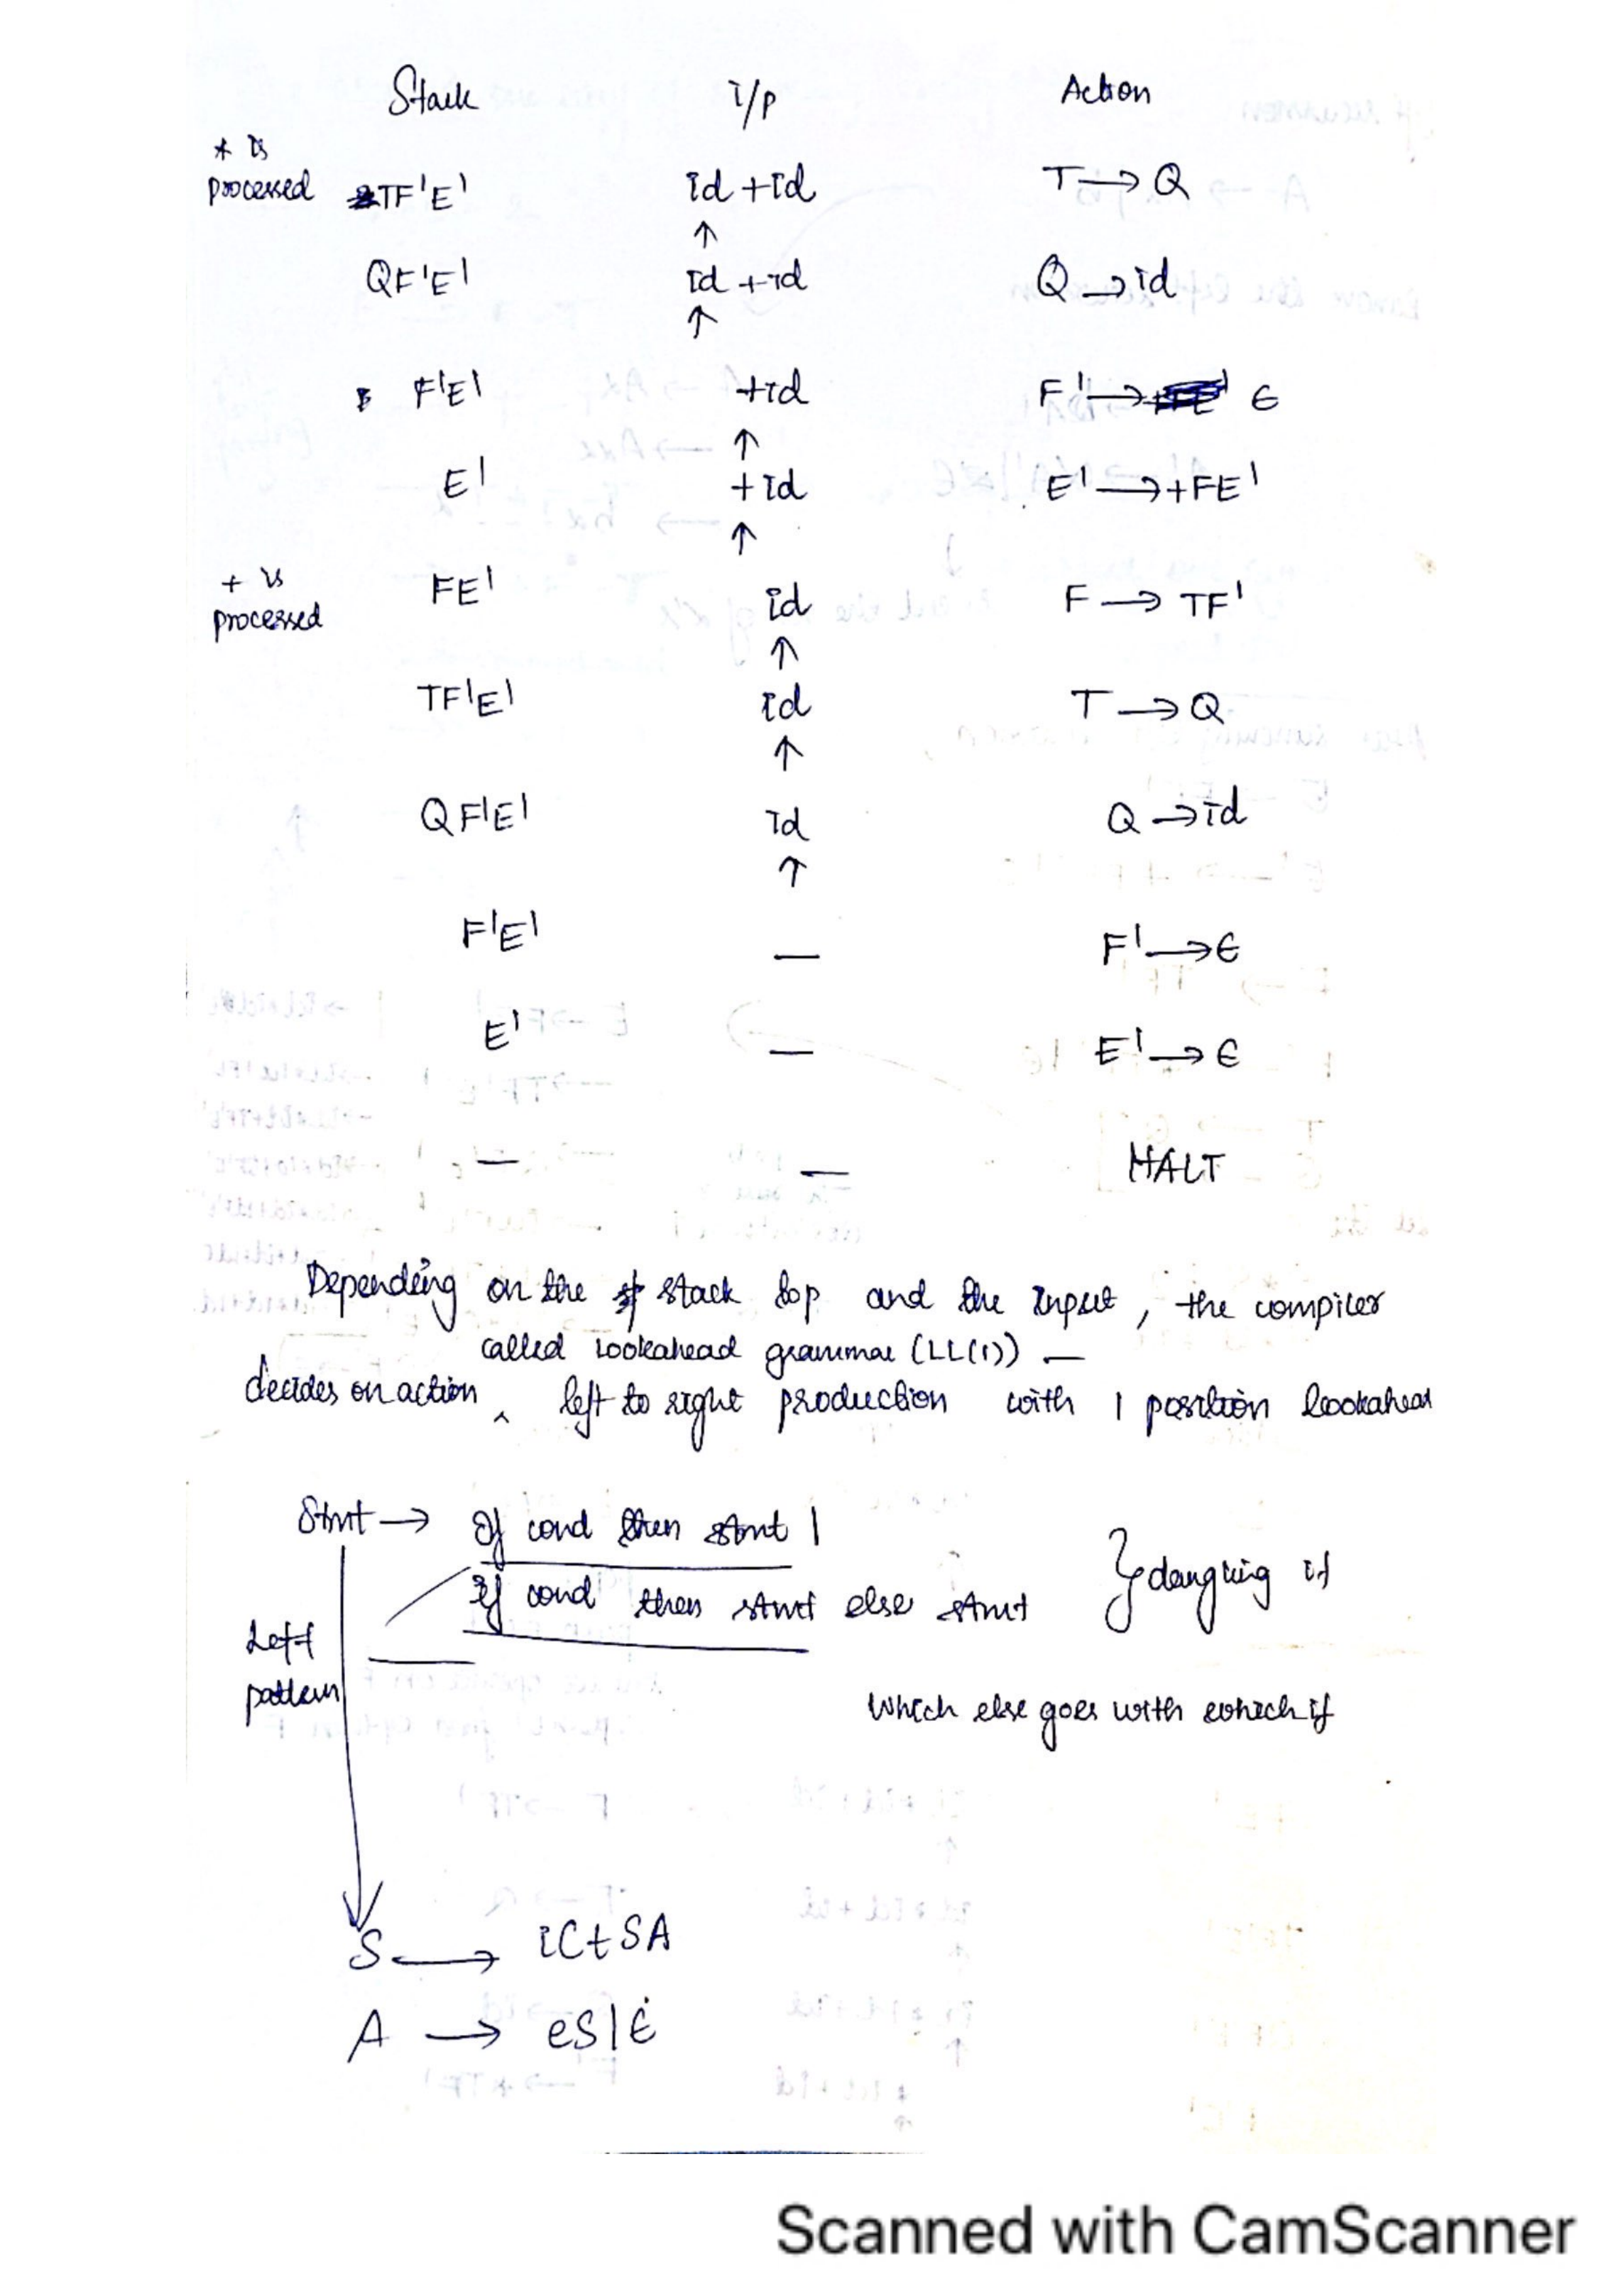 Stack i/p Action
* is
processed TF'E' id +id T → Q
↑
QF'E' id +id Q → id
↑
F'E' +id F' → ϵ
↑
E' +id E' → +FE'
↑
+ is
processed FE' id F → TF'
↑
TF'E' id T → Q
↑
QF'E' id Q → id
↑
F'E' — F' → ϵ
E' — E' → ϵ
— — HALT
Depending on the stack top and the input, the compiler
called lookahead grammar (LL(1)) —
decides on action ‸ left to right production with 1 position lookahead
Stmt → If cond then stmt |
If cond then stmt else stmt } dangling if
Left
pattern
which else goes with which if
S → iCtSA
A → eS|ϵ
Scanned with CamScanner